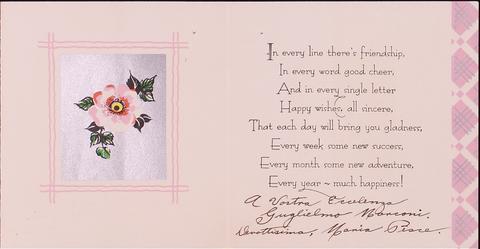 In every line there's friendship,
In every word good cheer,
And in every single letter
Happy wishes, all sincere,
That each day will bring you gladness,
Every week some new success,
Every month some new adventure,
Every year ~ much happiness!
A Vostra Eccelenza
Guglielmo Marconi.
Devottissima, Maria Pesce.